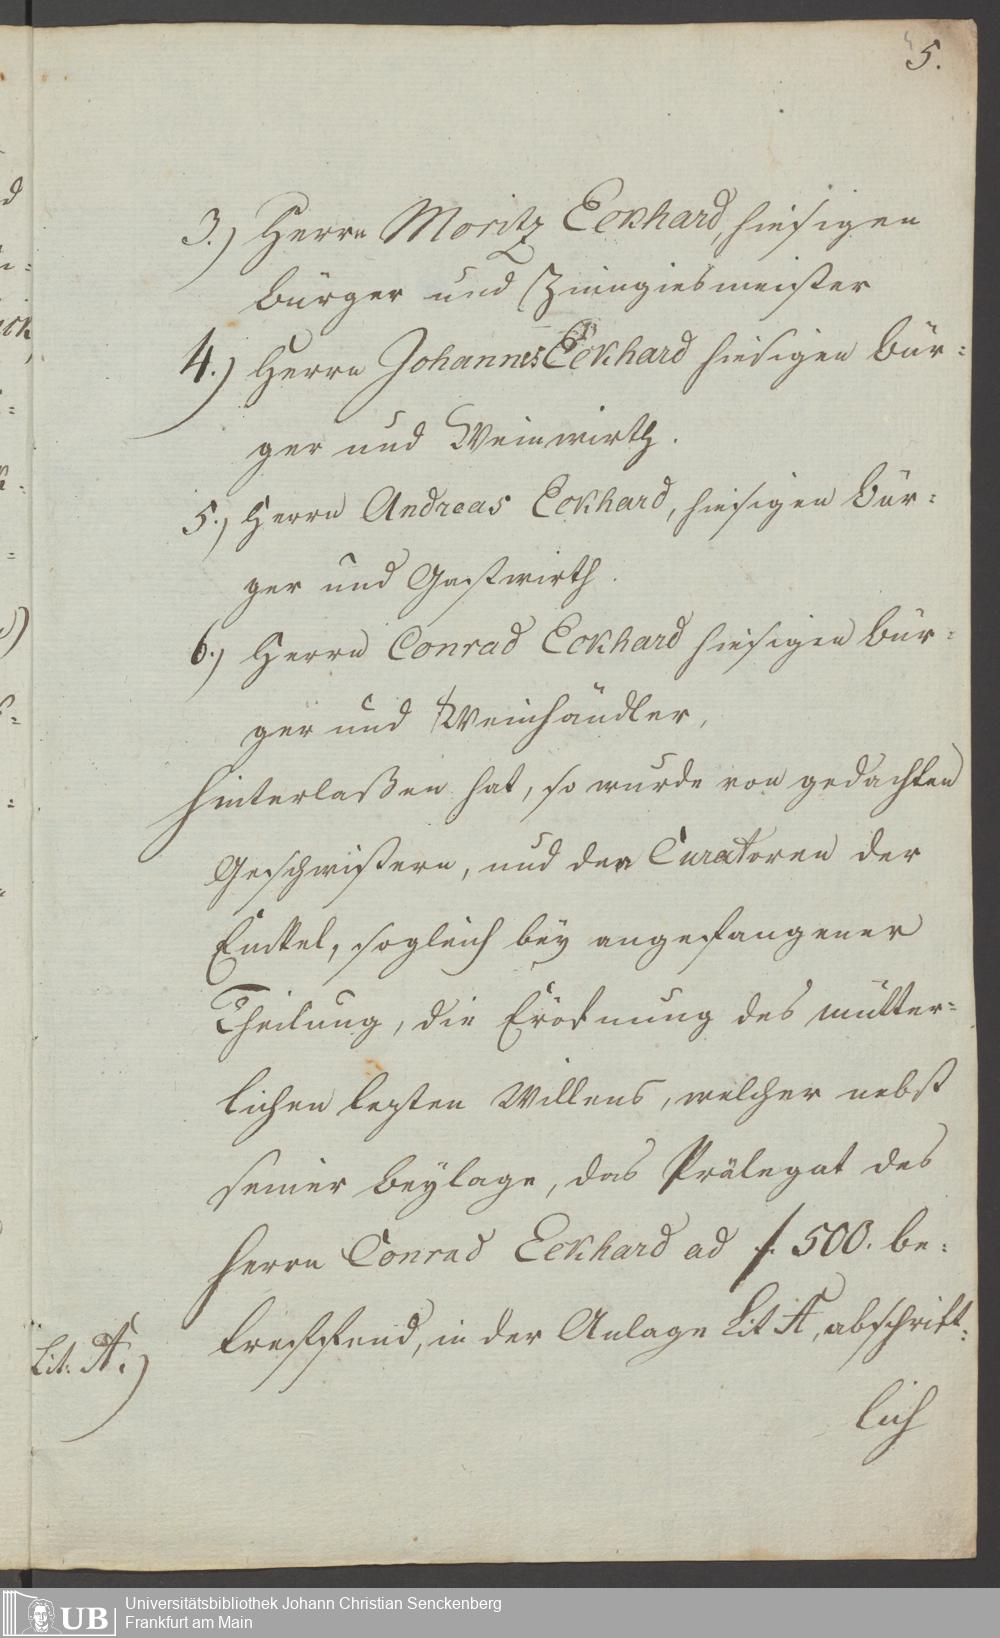 5.
3.) Herrn Moritz Eckhard, hiesigen
Bürger und Zinngiesmeister
4.) Herrn Johannes Eckhard hiesigen Bür-
ger und Weinwirth.
5.) Herrn Andreas Eckhard, hiesigen Bür-
ger und Gastwirth.
6.) Herrn Conrad Eckhard hiesigen Bür-
ger und Weinhändler,
hinterlaßen hat, so wurde von gedachten
Geschwistern, und den Curatoren der
Enckel, sogleich bey angefangener
Theilung, die Eröfnung des mütter-
lichen lezten Willens, welcher nebst
seiner Beylage, das Prälegat des
Herrn Conrad Eckhard ad f. 500. be-
treffend, in der Anlage Lit A, abschrift-
Lit: A.)
lich
UB
Universitätsbibliothek Johann Christian Senckenberg
Frankfurt am Main